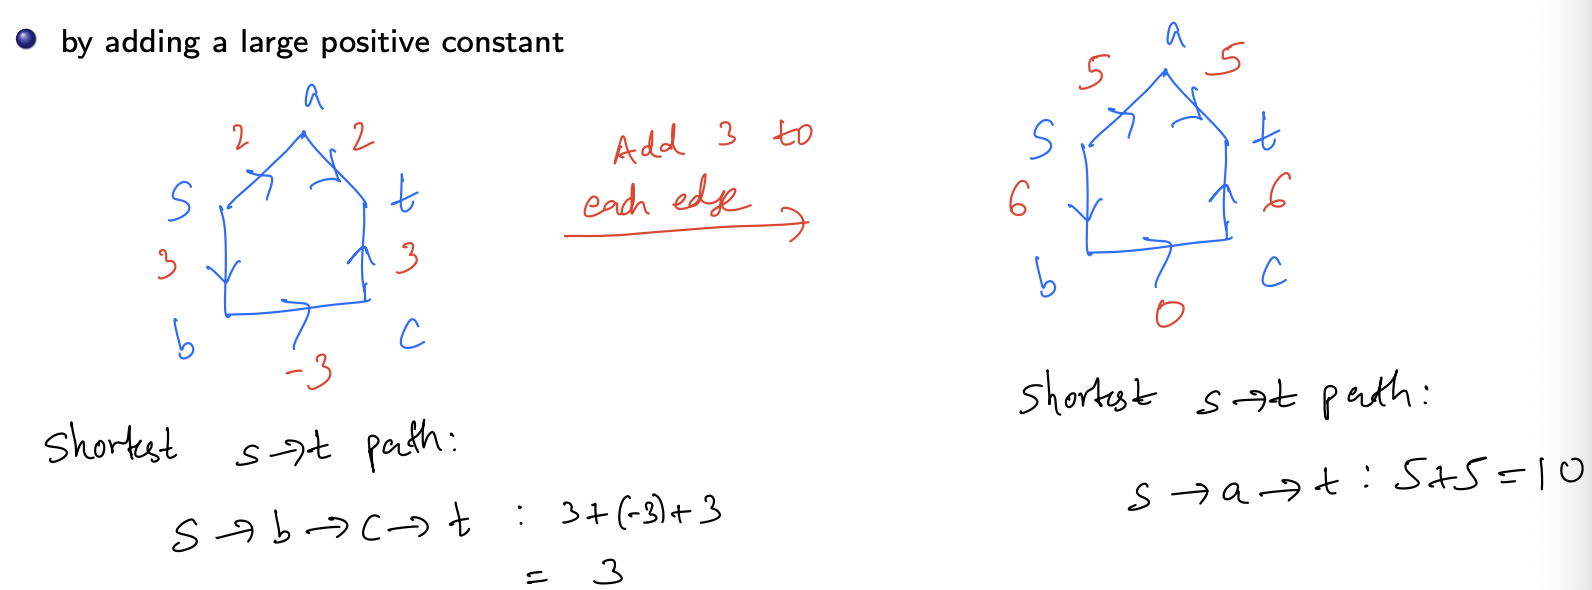 by adding a large positive constant
a
2 2
S t
3 3
b c
-3
Shortest s→t path:
S → b → c → t : 3+(-3)+3
= 3
Add 3 to
each edge
a
5 5
S t
6 6
b c
0
Shortest s→t path:
s → a → t : 5+5=10